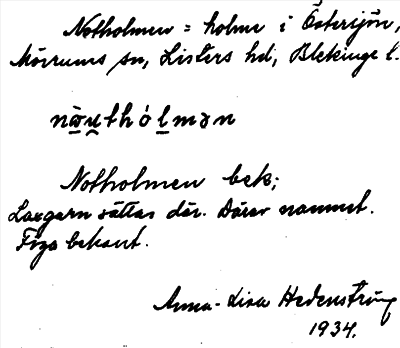 Notholmen = holme i Östersjön,
Mörrums sn, Listers hd, Blekinge l.
Notholmen bek;
Laxgarn sättas där. Därav namnet.
Föga bekant.
Anna-Lisa Hedenström
1934.